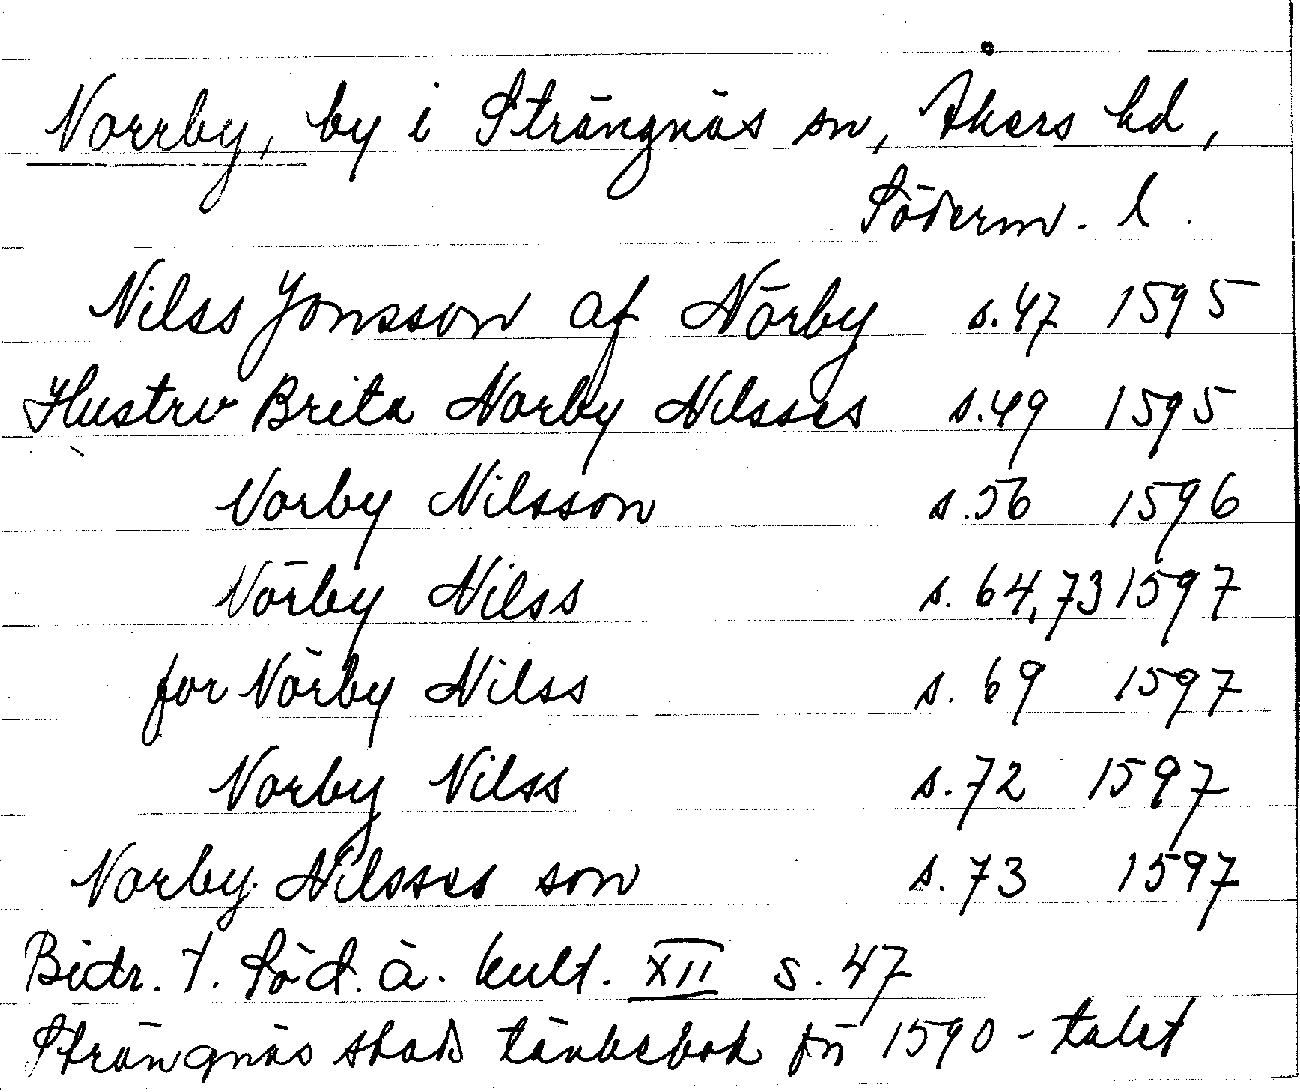 Norrby, by i Strängnäs sn, Åkers hd,
Söderm. l.
Nilss Jonsson af Nörby s.47 1595
Hustrv Brita Norby Nilsses s.49 1595
Norby Nilsson s.56 1596
Nörby Nilss s. 64,73 1597
for Nörby Nilss s. 69 1597
Norby Nilss s.72 1597
Norby Nilsses son s.73 1597
Bidr. t. Söd. ä. kult. XII s. 47
Strängnäs stads tänkebok fr 1590-talet